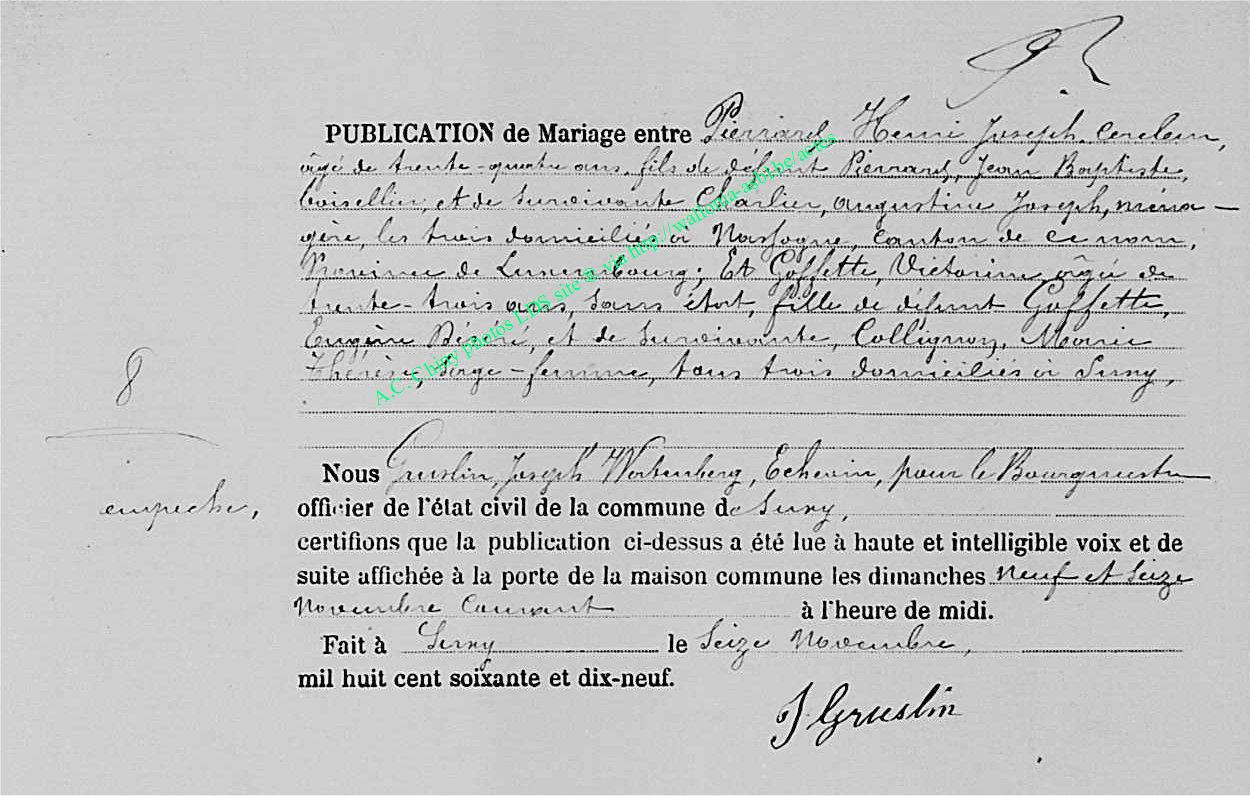 PUBLICATION de Mariage entre Pierrard, Henri Joseph,
âgé de trente-quatre ans, fils de défunt Pierrard, Jean Baptiste,
boisellier, et de survivante Charlier, Augustine Joseph, ména-
gère, les trois domiciliés à Nassogne, canton de ce nom,
Province de Luxembourg; Et Goffette, Victorine, âgée de
trente-trois ans, sans état, fille de défunt Goffette,
Eugène Désiré, et de survivante, Collignon, Marie
Thérèse, Sage-femme, tous trois domiciliés à Suxy,
8
Nous Gruslin, Joseph Echevin, pour le Bourgmestre
empêché,
officier de l'état civil de la commune de Suxy,
certifions que la publication ci-dessus a été lue à haute et intelligible voix et de
suite affichée à la porte de la maison commune les dimanches neuf et seize
Novembre courant à l'heure de midi.
Fait à Suxy le Seize Novembre,
mil huit cent soixante et dix-neuf.
J Gruslin
A.C. Chiny photos LDS site et via http://wallonia-asbl.be/actes